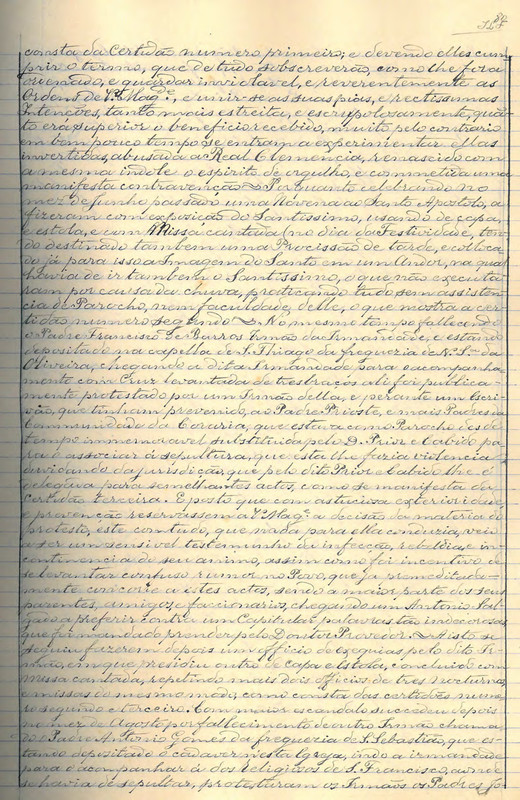 124
consta da Certidão numero primeiro; e devendo elles cum
prir o termo, que de tudo subscreverão, como lhe fora
orientado, e guardar inviolavel, e reverentemente as
Ordens de V. Mag.e, e unir-se as suas pias, e rectissimas
Intenções, tanto mais estreita, e escrupolosamente, quan
to era superior o beneficio recebido, muito pelo contrario
em bem pouco tempo se entrou a experimentar ellas
invertidas, abusada a Real Clemencia, renascido com
a mesma indole o espirito de orgulho, e commetida uma
manifesta contravenção. Porquanto celebrando no
mez de junho passado uma Novena ao Santo Apostolo, a
fizeram com exposição do Santissimo, usando de capa,
e estola, e com Missa cantada (no dia da Festividade, ten
do destinado tambem uma Procissão de tarde, e colloca
do já para isso a Imagem do Santo em um Andor, na qual
havia de ir tambem o Santissimo, o que não executa
ram por causa da chuva, praticando tudo sem assisten
cia de Parocho, nem faculdade delle, o que mostra a cer
tidão numero segundo. No mesmo tempo fallecendo
o Padre Francisco de Barros Irmão da Irmandade, e estando
depositado na capella de S. Thiago da freguezia de N. S.ra da
Oliveira, chegando a dita Irmandade para o acompanha
mente com Cruz levantada de tres braços ali foi publica
mente protestado por um Irmão della, e perante um Escri
vão, que tinham prevenido, ao Padre Prioste, e mais Padres da
Communidade da Coraria, que estava como Parocho des de
tempo immemoravel substituida pelo D. Prior e Cabido pa
ra o associar á sepultura, que esta lhe fazia violencia
duvidando da jurisdicção, que pelo dito Prior e Cabido lhe é
delegava para semelhantes actos, como se manifesta da
certidão terceira. E posto que com astuciosa exterioridade
e prevenção reservassem a V. Mag.e a decisão da materia do
protesto, este comtudo, que nada para ella conduzia, veiu
a ser um sensivel testemunho da infecção, rebeldia, e in
continencia do seu animo, assim como foi incentivo de
se levantar confuso rumor no Povo, que já premeditada
mente concorre a estes actos, sendo a maior parte dos seus
parentes, amigos, e faccionarios, chegando um Antonio Sal
gado a preferir contra um Capitular palavras tão indecorosas
que foi mandado prender pelo Doutor Provedor. A isto se
seguiu fazerem depois um officio de exequias pelo dito Ir
mão, em que presidiu outro de capa e Estola, e concluido com
missa cantada, repetindo mais dois officios de tres nocturnos
e missas do mesmo modo, como consta das certidões nume
ro segundo e terceiro. Com maior escandalo succedeu depois
no mez de Agosto por fallecimento de outro Irmão chama
do o Padre Antonio Gomes da freguezia de S. Sebastião, que es
tando depositado o cadaver nesta Igreja, indo a irmandade
para o acompanhar á dos Religiosos de S. Francisco, aonde
se havia de sepultar, protestaram os Irmãos os Padres